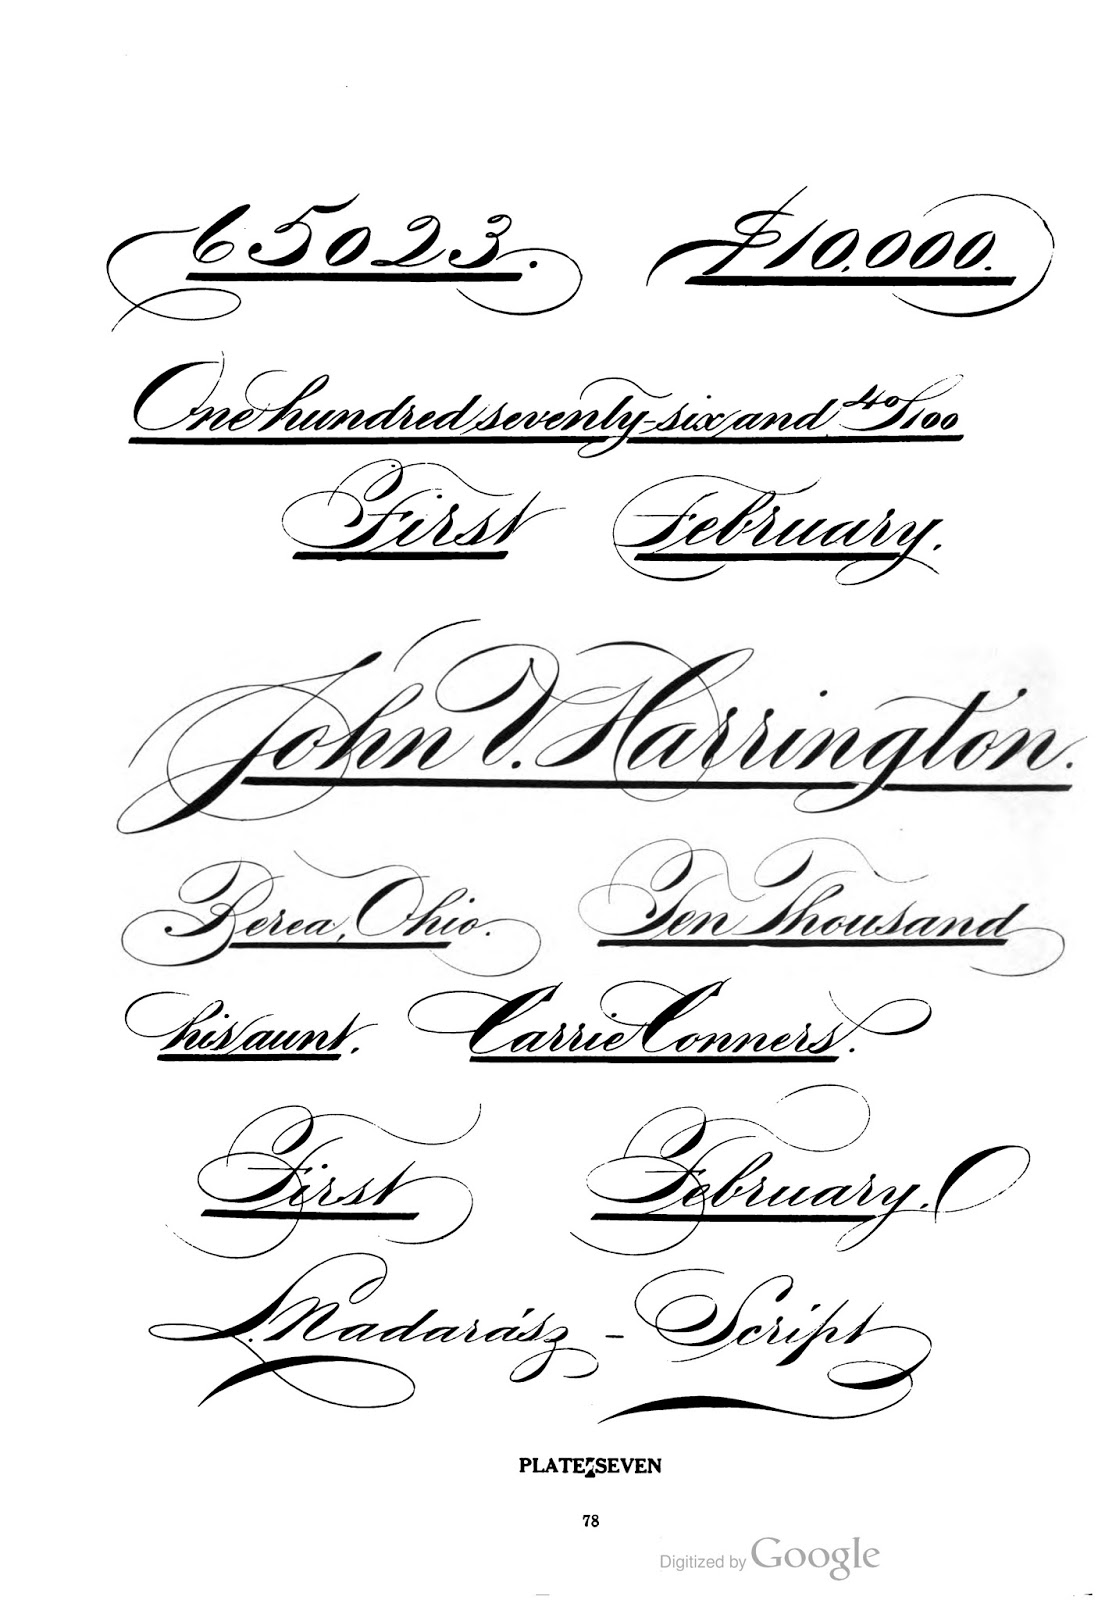 65023. $10,000.
One hundred seventy-six and 40/100
First February.
John D. Harrington.
Berea, Ohio. Ten Thousand
his aunt. Carrie Conners.
First February.
L. Madarász - Script
PLATE SEVEN
78
Digitized by Google